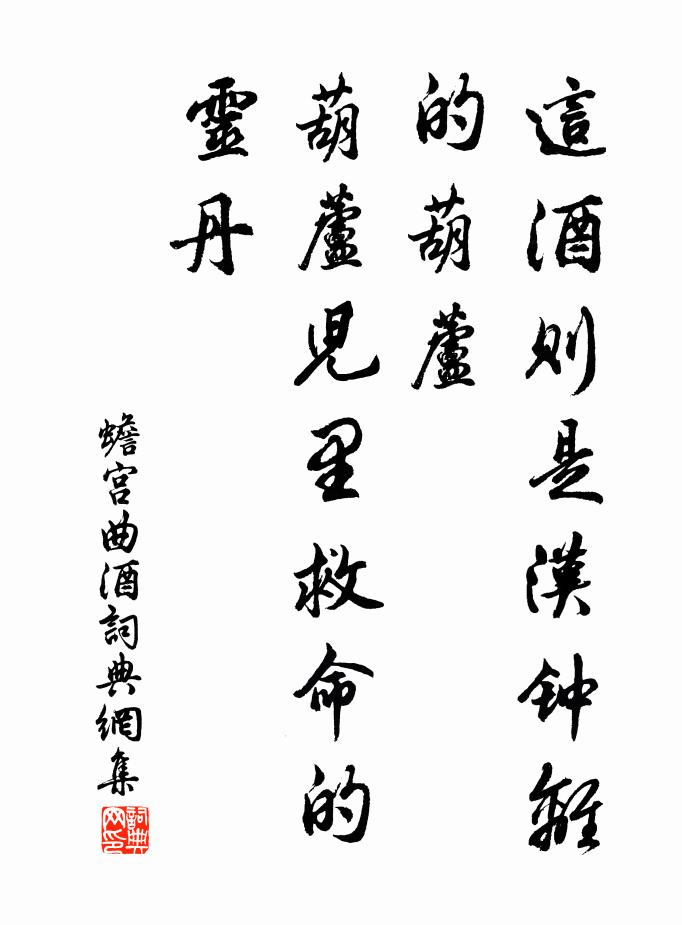 這酒則是漢钟離
的葫蘆
葫蘆兒里救命的
靈丹
蟾宫曲酒詞典網集
詞典
网印